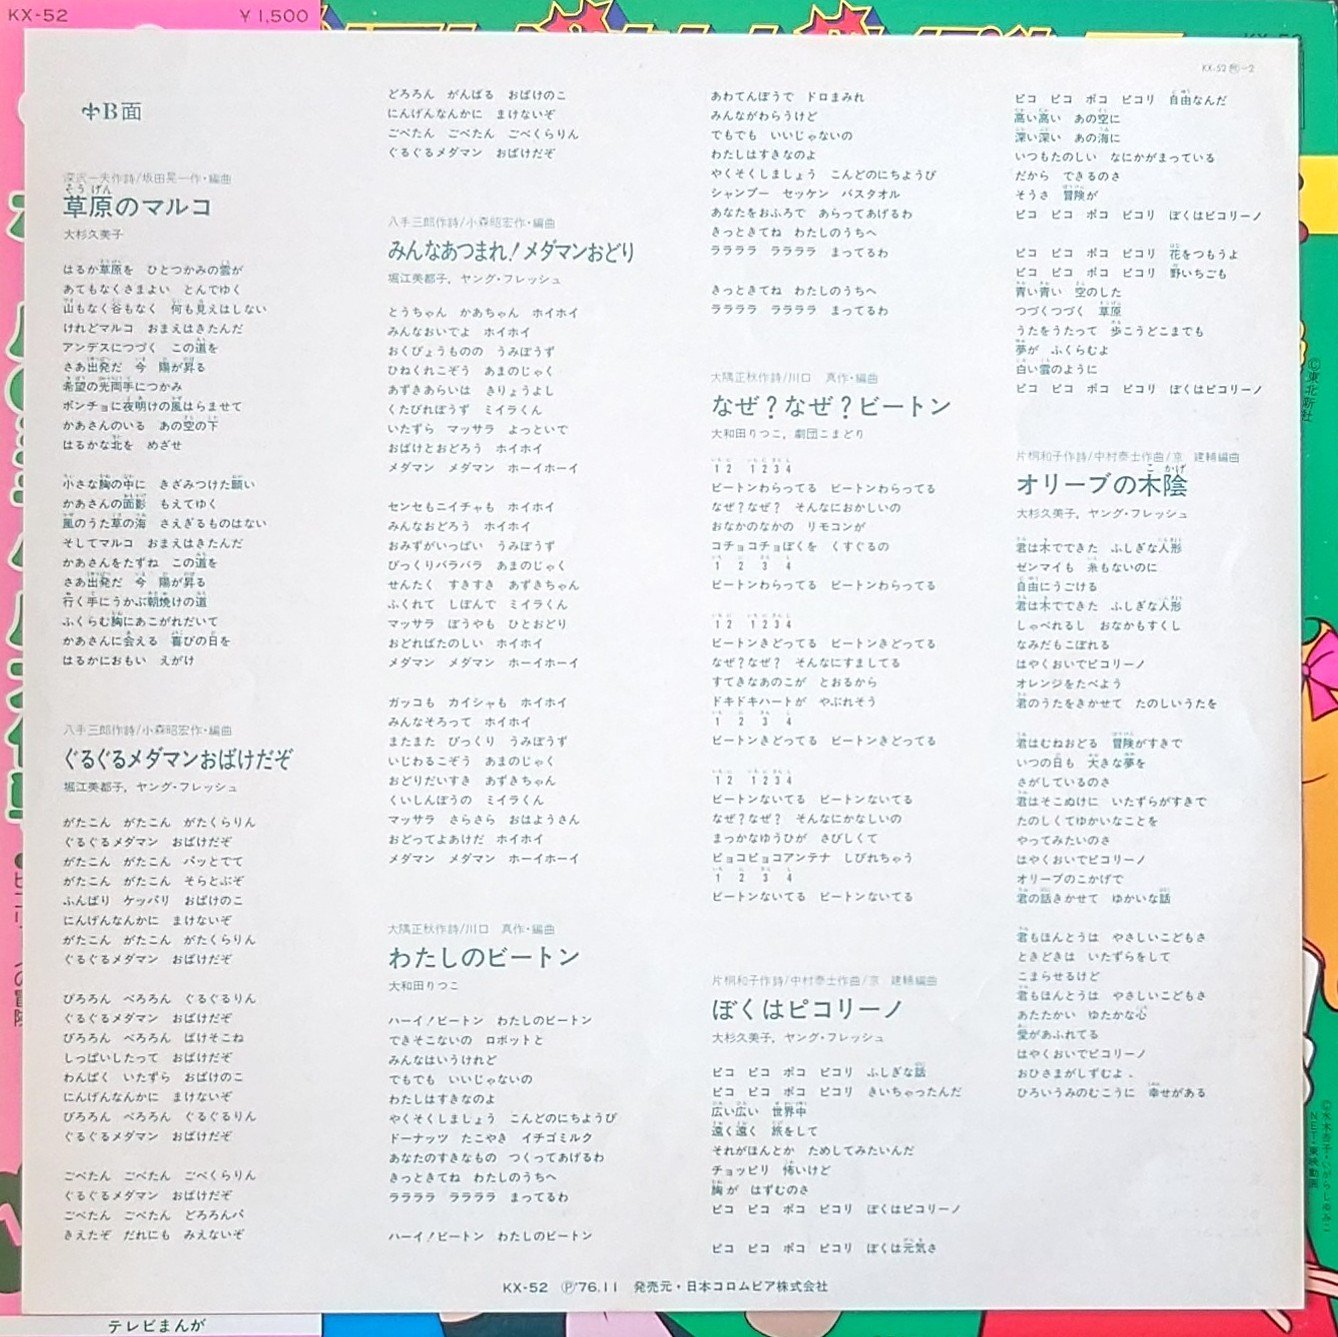 KX-52
¥1,500
KX-52 ㊞-2
B面
深沢一夫作詩/坂田晃一作・編曲
草原のマルコ
大杉久美子
はるか草原を ひとつかみの雲が
あてもなくさまよい とんでゆく
山もなく谷もなく 何も見えはしない
けれどマルコ おまえはきたんだ
アンデスにつづく この道を
さあ出発だ 今 陽が昇る
希望の光両手につかみ
ポンチョに夜明けの風はらませて
かあさんのいる あの空の下
はるかな北を めざせ
小さな胸の中に きざみつけた願い
かあさんの面影 もえてゆく
風のうた草の海 さえぎるものはない
そしてマルコ おまえはきたんだ
かあさんをたずね この道を
さあ出発だ 今 陽が昇る
行く手にうかぶ朝焼けの道
ふくらむ胸にあこがれだいて
かあさんに会える 喜びの日を
はるかにおもい えがけ
八手三郎作詩/小森昭宏作・編曲
ぐるぐるメダマンおばけだぞ
堀江美都子，ヤング・フレッシュ
がたこん がたこん がたくらりん
ぐるぐるメダマン おばけだぞ
がたこん がたこん パッとでて
がたこん がたこん そらとぶぞ
ふんばり ケッパリ おばけのこ
にんげんなんかに まけないぞ
がたこん がたこん がたくらりん
ぐるぐるメダマン おばけだぞ
ぴろろん べろろん ぐるぐるりん
ぐるぐるメダマン おばけだぞ
ぴろろん べろろん ばけそこね
しっぱいしたって おばけだぞ
わんぱく いたずら おばけのこ
にんげんなんかに まけないぞ
ぴろろん べろろん ぐるぐるりん
ぐるぐるメダマン おばけだぞ
ごべたん ごべたん ごべくらりん
ぐるぐるメダマン おばけだぞ
ごべたん ごべたん どろろんパ
きえたぞ だれにも みえないぞ
どろろん がんばる おばけのこ
にんげんなんかに まけないぞ
ごべたん ごべたん ごべくらりん
ぐるぐるメダマン おばけだぞ
八手三郎作詩/小森昭宏作・編曲
みんなあつまれ！メダマンおどり
堀江美都子，ヤング・フレッシュ
とうちゃん かあちゃん ホイホイ
みんなおいでよ ホイホイ
おくびょうものの うみぼうず
ひねくれこぞう あまのじゃく
あずきあらいは きりょうよし
くたびれぼうず ミイラくん
いたずら マッサラ よっといで
おばけとおどろう ホイホイ
メダマン メダマン ホーイホーイ
センセもニイチャも ホイホイ
みんなおどろう ホイホイ
おみずがいっぱい うみぼうず
びっくりバラバラ あまのじゃく
せんたく すきすき あずきちゃん
ふくれて しぼんで ミイラくん
マッサラ ぼうやも ひとおどり
おどればたのしい ホイホイ
メダマン メダマン ホーイホーイ
ガッコも カイシャも ホイホイ
みんなそろって ホイホイ
またまた びっくり うみぼうず
いじわるこぞう あまのじゃく
おどりだいすき あずきちゃん
くいしんぼうの ミイラくん
マッサラ さらさら おはようさん
おどってよあけだ ホイホイ
メダマン メダマン ホーイホーイ
大隅正秋作詩/川口 真作・編曲
わたしのビートン
大和田りつこ
ハーイ！ビートン わたしのビートン
できそこないの ロボットと
みんなはいうけれど
でもでも いいじゃないの
わたしはすきなのよ
やくそくしましょう こんどのにちようび
ドーナッツ たこやき イチゴミルク
あなたのすきなもの つくってあげるわ
きっときてね わたしのうちへ
ララララ ララララ まってるわ
ハーイ！ビートン わたしのビートン
あわてんぼうで ドロまみれ
みんながわらうけど
でもでも いいじゃないの
わたしはすきなのよ
やくそくしましょう こんどのにちようび
シャンプー セッケン バスタオル
あなたをおふろで あらってあげるわ
きっときてね わたしのうちへ
ララララ ララララ まってるわ
きっときてね わたしのうちへ
ララララ ララララ まってるわ
大隅正秋作詩/川口 真作・編曲
なぜ？なぜ？ビートン
大和田りつこ，劇団こまどり
1 2 1 2 3 4
ビートンわらってる ビートンわらってる
なぜ？なぜ？ そんなにおかしいの
おなかのなかの リモコンが
コチョコチョぼくを くすぐるの
1 2 3 4
ビートンわらってる ビートンわらってる
1 2 1 2 3 4
ビートンきどってる ビートンきどってる
なぜ？なぜ？ そんなにすましてる
すてきなあのこが とおるから
ドキドキハートが やぶれそう
1 2 3 4
ビートンきどってる ビートンきどってる
1 2 1 2 3 4
ビートンないてる ビートンないてる
なぜ？なぜ？ そんなにかなしいの
まっかなゆうひが さびしくて
ピョコピョコアンテナ しびれちゃう
1 2 3 4
ビートンないてる ビートンないてる
片桐和子作詩/中村泰士作曲/京 建輔編曲
ぼくはピコリーノ
大杉久美子，ヤング・フレッシュ
ピコ ピコ ポコ ピコリ ふしぎな話
ピコ ピコ ポコ ピコリ きいちゃったんだ
広い広い 世界中
遠く遠く 旅をして
それがほんとか ためしてみたいんだ
チョッピリ 怖いけど
胸が はずむのさ
ピコ ピコ ポコ ピコリ ぼくはピコリーノ
ピコ ピコ ポコ ピコリ ぼくは元気さ
ピコ ピコ ポコ ピコリ 自由なんだ
高い高い あの空に
深い深い あの海に
いつもたのしい なにかがまっている
だから できるのさ
そうさ 冒険が
ピコ ピコ ポコ ピコリ ぼくはピコリーノ
ピコ ピコ ポコ ピコリ 花をつもうよ
ピコ ピコ ポコ ピコリ 野いちごも
青い青い 空のした
つづくつづく 草原
うたをうたって 歩こうどこまでも
夢が ふくらむよ
白い雲のように
ピコ ピコ ポコ ピコリ ぼくはピコリーノ
片桐和子作詩/中村泰士作曲/京 建輔編曲
オリーブの木陰
大杉久美子，ヤング・フレッシュ
君は木でできた ふしぎな人形
ゼンマイも 糸もないのに
自由にうごける
君は木でできた ふしぎな人形
しゃべれるし おなかもすくし
なみだもこぼれる
はやくおいでピコリーノ
オレンジをたべよう
君のうたをきかせて たのしいうたを
君はむねおどる 冒険がすきで
いつの日も 大きな夢を
さがしているのさ
君はそこぬけに いたずらがすきで
たのしくてゆかいなことを
やってみたいのさ
はやくおいでピコリーノ
オリーブのこかげで
君の話きかせて ゆかいな話
君もほんとうは やさしいこどもさ
ときどきは いたずらをして
こまらせるけど
君もほんとうは やさしいこどもさ
あたたかい ゆたかな心
愛があふれてる
はやくおいでピコリーノ
おひさまがしずむよ、
ひろいうみのむこうに 幸せがある
KX-52 Ⓟ'76.11 発売元・日本コロムビア株式会社
テレビまんが
©東北新社
NET・東映動画